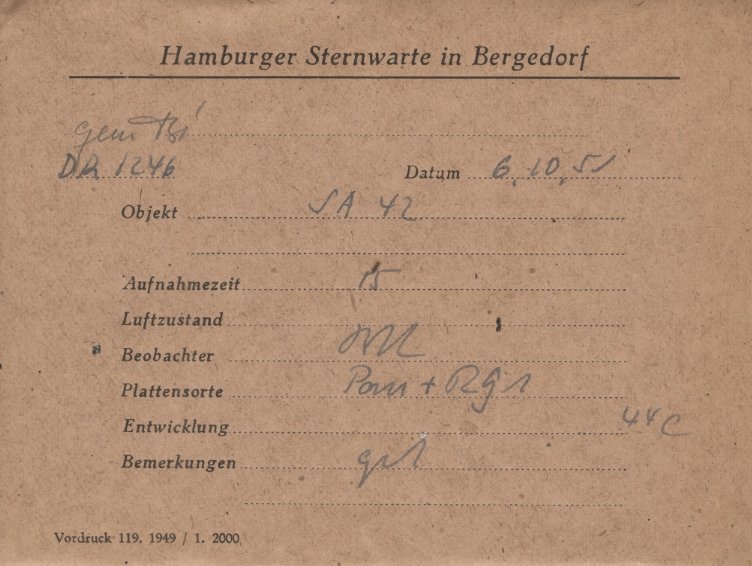 Hamburger Sternwarte in Bergedorf
gem
DR 1246 Datum 6.10.51
Objekt SA 42
Aufnahmezeit 15
Luftzustand
Beobachter
Plattensorte Pan + RG1
Entwicklung 44C
Bemerkungen gut
Vordruck 119. 1949 / 1. 2000